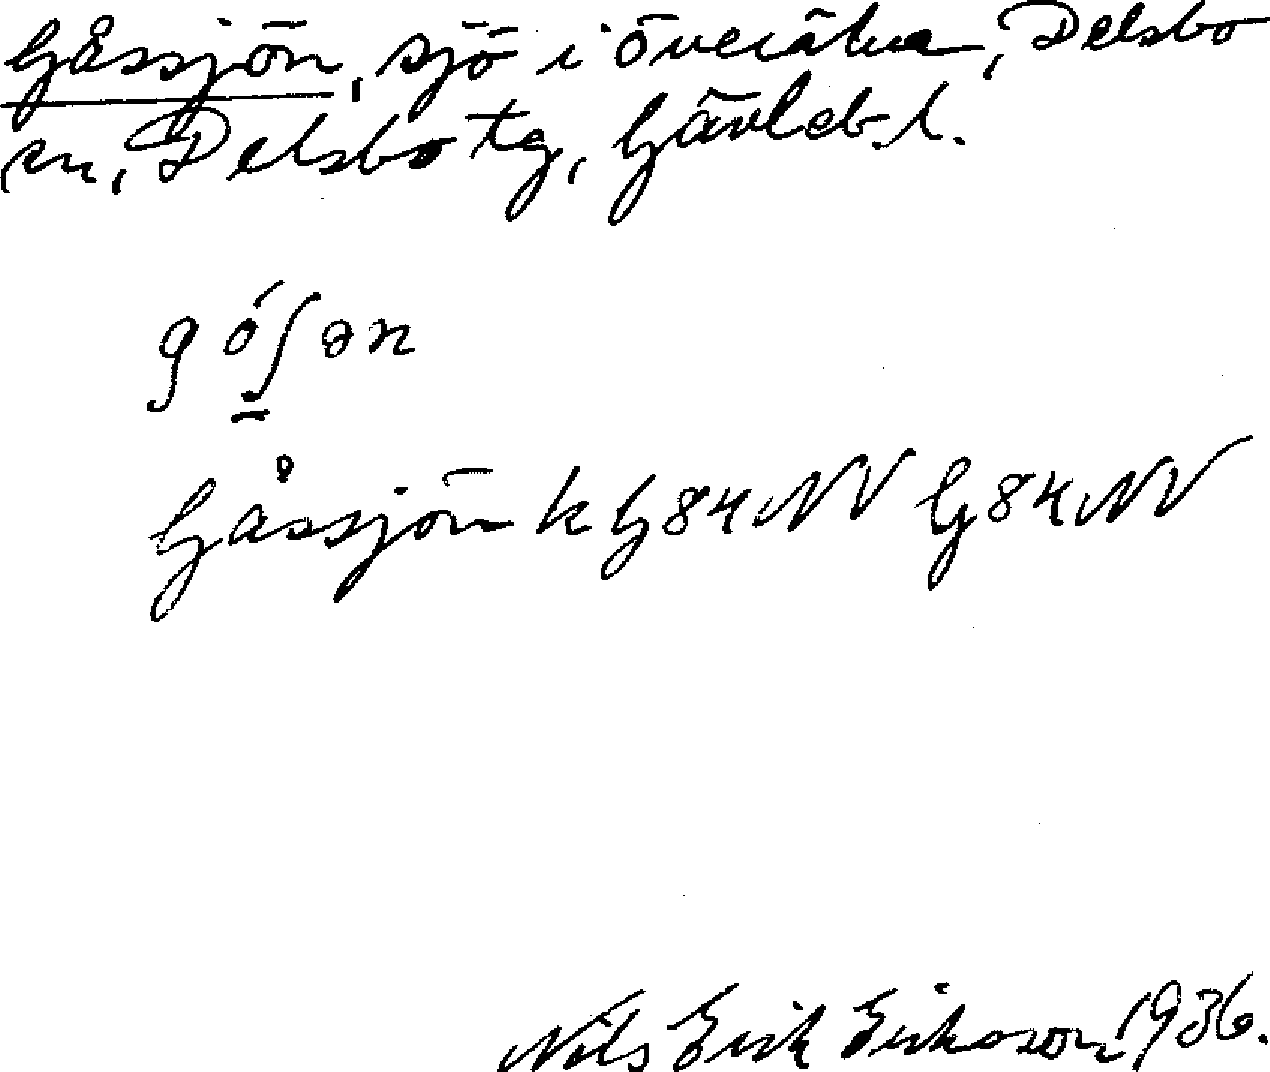 Gåssjön, sjö i Överälve, Delsbo
sn, Delsbo tg, Gävleb. l.
gó̱ʃən
Gåssjön k G 84 NV G 84 NV
Nils Erik Eriksson 1936.